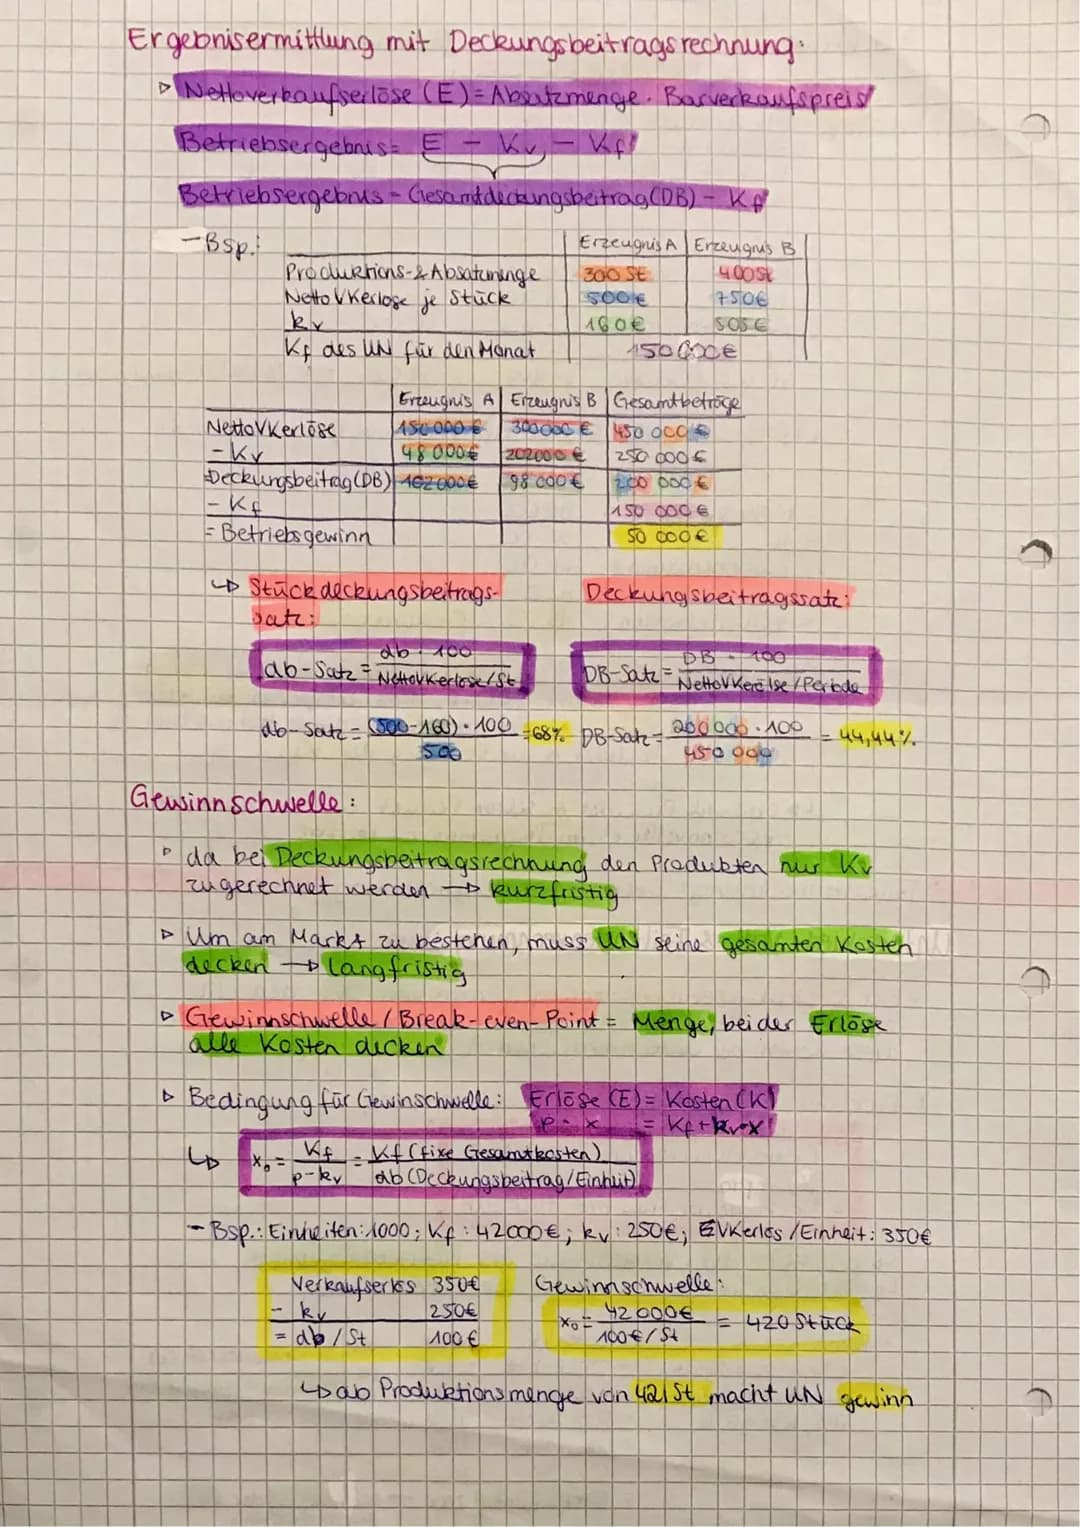 Ergebnisermittlung mit Deckungsbeitragsrechnung:
▷ Nettoverkaufserlöse (E) = Absatzmenge · Barverkaufspreis
Betriebsergebnis = E - Kv - Kf
Betriebsergebnis = Gesamtdeckungsbeitrag (DB) - Kf
- Bsp.: Erzeugnis A Erzeugnis B
Produktions-& Absatzmenge 300 St 400 St
Netto VKerlöse je Stück 500 € 750 €
kv 160 € 505 €
Kf des UN für den Monat 150 000 €
Erzeugnis A Erzeugnis B Gesamtbeträge
NettoVKerlöse 150 000 € 300 000 € 450 000 €
- Kv 48 000 € 202 000 € 250 000 €
Deckungsbeitrag (DB) 102 000 € 98 000 € 200 000 €
- Kf 150 000 €
= Betriebsgewinn 50 000 €
↳ Stückdeckungsbeitrags- Deckungsbeitragssatz:
satz:
db-Satz = db · 100 / NettoVKerlöse/St DB-Satz = DB · 100 / NettoVKerölse/Periode
db-Satz = (500-160) · 100 / 500 = 68% DB-Satz = 200 000 · 100 / 450 000 = 44,44%
Gewinnschwelle:
▷ da bei Deckungsbeitragsrechnung den Produkten nur Kv
zugerechnet werden → kurzfristig
▷ Um am Markt zu bestehen, muss UN seine gesamten Kosten
decken → langfristig
▷ Gewinnschwelle / Break-even-Point = Menge, bei der Erlöse
alle Kosten decken
▷ Bedingung für Gewinschwelle: Erlöse (E) = Kosten (K)
p · x = Kf + kv · x
↳ x₀ = Kf / p - kv = Kf (fixe Gesamtkosten) / db (Deckungsbeitrag/Einheit)
- Bsp.: Einheiten: 1000; Kf: 42000€; kv: 250€; VKerlös/Einheit: 350€
Verkaufserlös 350€ Gewinnschwelle:
- kv 250€ x₀ = 42 000€ / 100€/St = 420 Stück
= db / St 100 €
↳ ab Produktionsmenge von 421 St macht UN gewinn